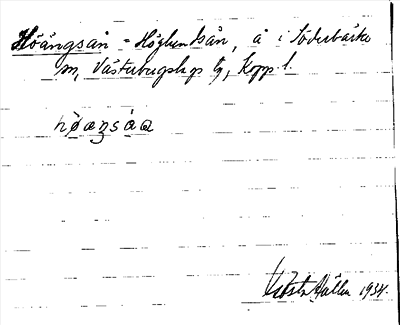 Höängsån = Högbensån, å i Söderbärke
sn, Västerbergslags tg, Kopp. l.
höaŋsåa
Gösta Hallén 1934.